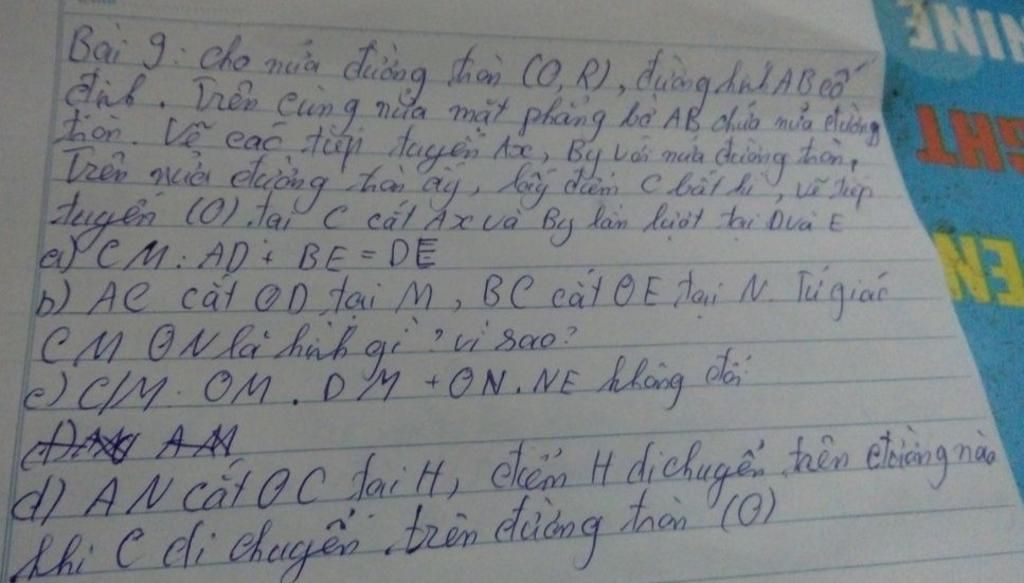 Bài 9: Cho nửa đường tròn (O, R), đường kính AB cố
định. Trên cùng nửa mặt phẳng bờ AB chứa nửa đường
tròn. Vẽ các tiếp tuyến Ax, By với nửa đường tròn.
Trên nửa đường tròn ấy, lấy điểm C bất kì, vẽ tiếp
tuyến (O) tại C cắt Ax và By lần lượt tại D và E
a) CM: AD + BE = DE
b) AC cắt OD tại M, BC cắt OE tại N. Tứ giác
CMON là hình gì? vì sao?
c) C/M: OM. DM + ON.NE không đổi
AM
d) AN cắt OC tại H, điểm H di chuyển trên đường nào
khi C di chuyển trên đường tròn (O)
NINE
GHT
EN